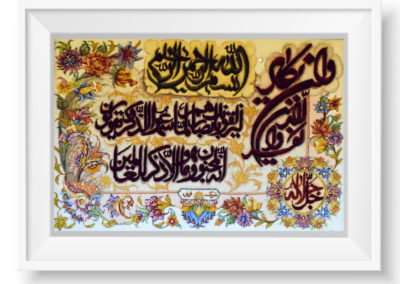 بسم الله الرحمن الرحيم
وان يكاد الذين كفروا
ليزلقونك بابصارهم لما سمعوا الذكر و يقولون
انه لمجنون و ما هو الا ذكر للعالمين
جل جلاله